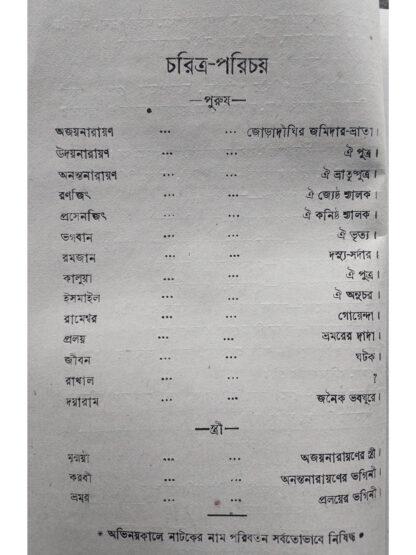 চরিত্র-পরিচয়
—পুরুষ—
অজয়নারায়ণ ... ... জোড়াদীঘির জমিদার-ভ্রাতা।
উদয়নারায়ণ ... ... ঐ পুত্র।
অনন্তনারায়ণ ... ... ঐ ভ্রাতুষ্পুত্র।
রণজিৎ ... ... ঐ জ্যেষ্ঠ শ্যালক।
প্রসেনজিৎ ... ... ঐ কনিষ্ঠ শ্যালক।
ভগবান ... ... ঐ ভৃত্য।
রমজান ... ... দস্যু-সর্দার।
কালুয়া ... ... ঐ পুত্র।
ইসমাইল ... ... ঐ অনুচর।
রামেশ্বর ... ... গোয়েন্দা।
প্রলয় ... ... ভ্রমরের দাদা।
জীবন ... ... ঘটক।
রাখাল ... ... ?
দয়ারাম ... ... জনৈক ভবঘুরে।
—স্ত্রী—
মৃন্ময়ী ... ... অজয়নারায়ণের স্ত্রী।
করবী ... ... অনন্তনারায়ণের ভগিনী।
ভ্রমর ... ... প্রলয়ের ভগিনী।
• অভিনয়কালে নাটকের নাম পরিবর্তন সর্বতোভাবে নিষিদ্ধ •